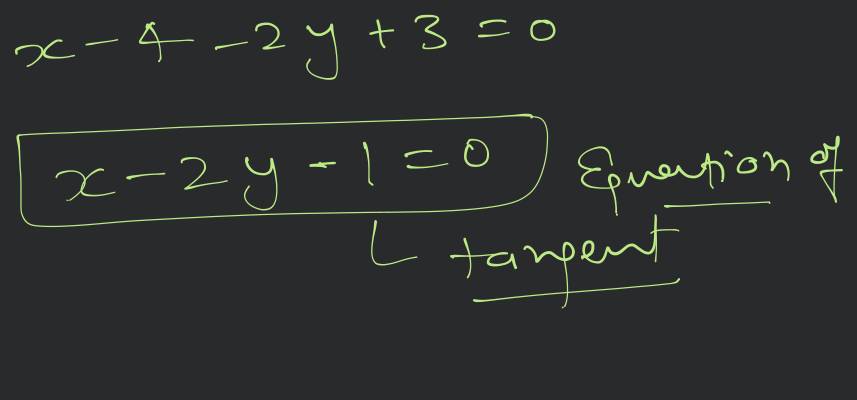 x - 4 - 2y + 3 = 0
x - 2y - 1 = 0 Equation of
tangent